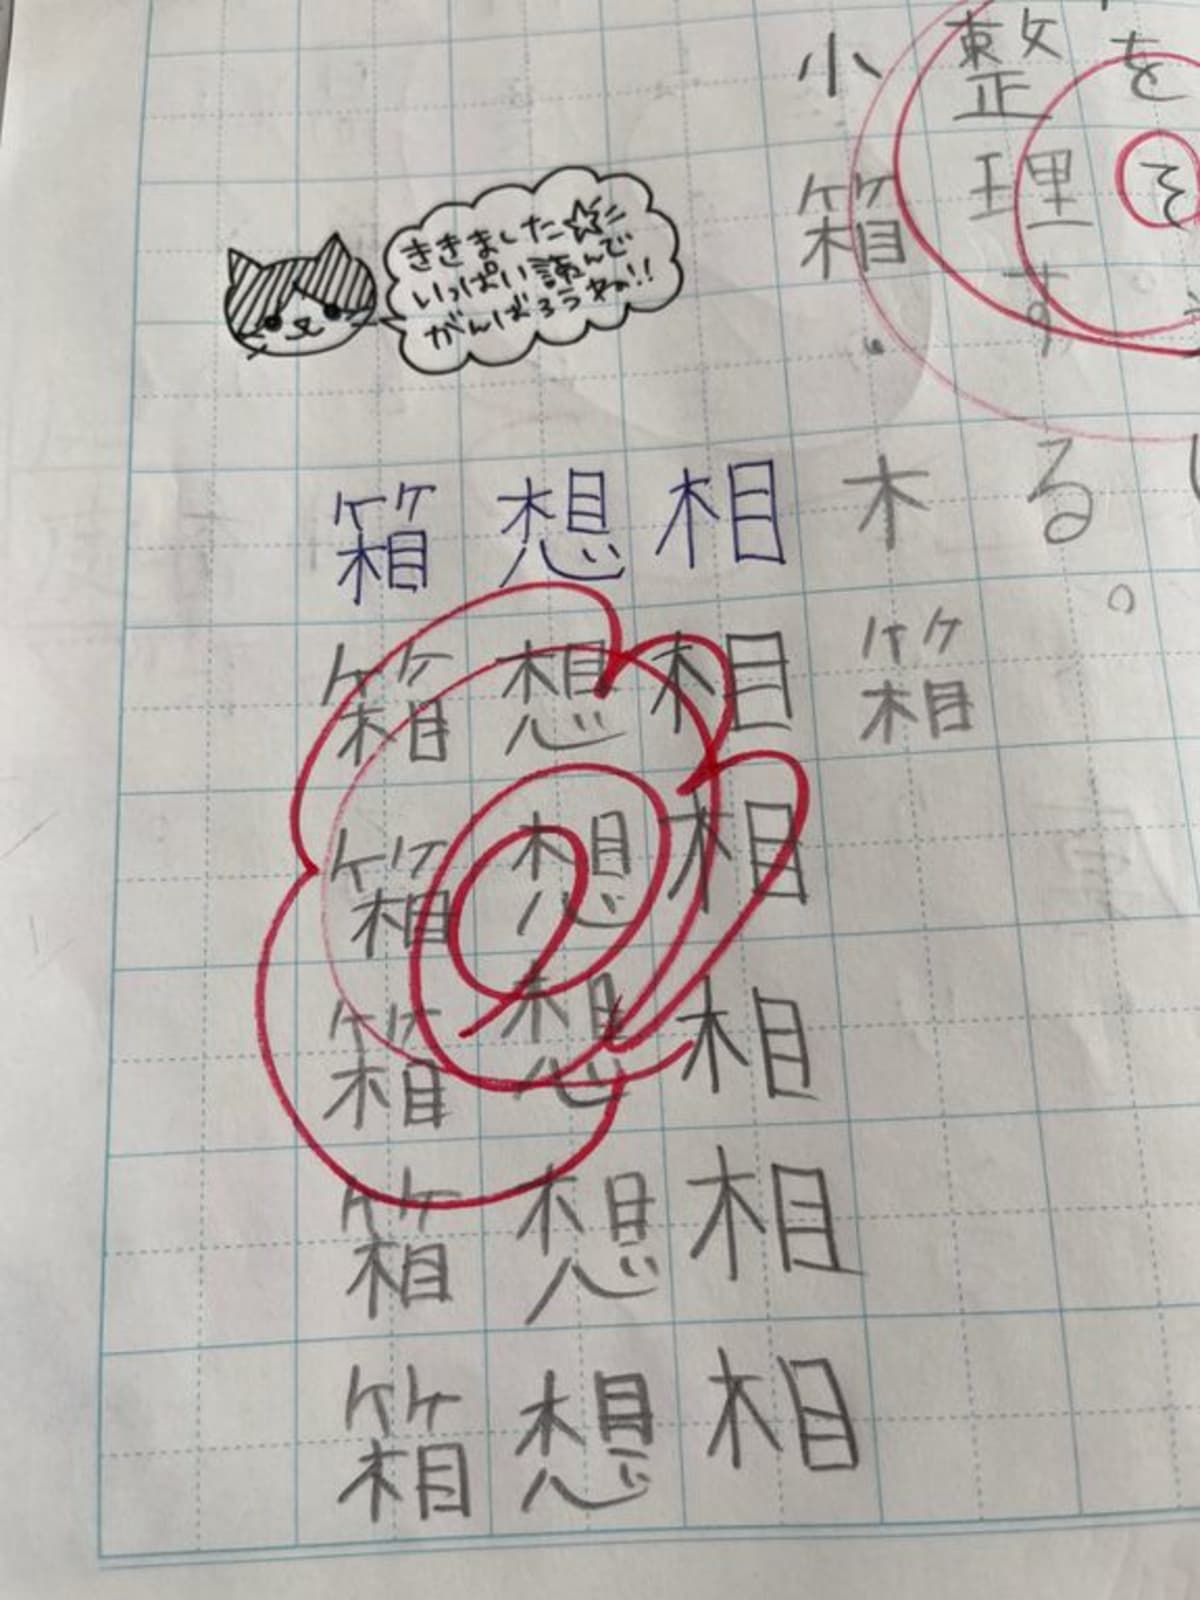 をそ
整理する。
小箱・木箱
相相相相相相
想想想想想想
箱箱箱箱箱箱
ききました☆
いっぱい読んで
がんばろうね!!